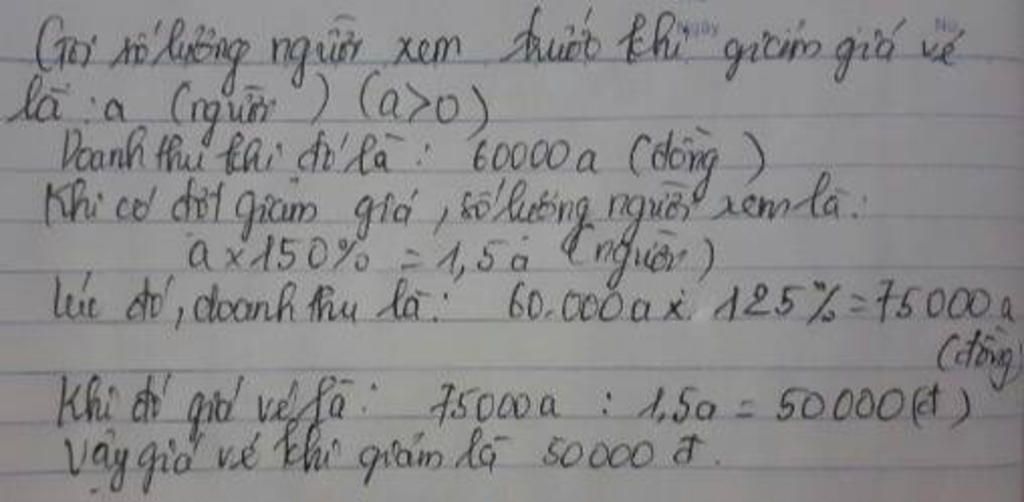 Gọi số lượng người xem trước khi giảm giá vé
là : a (người) (a>0)
Doanh thu khi đó là : 60000a (đồng)
Khi có đợt giảm giá, số lượng người xem là:
a × 150% = 1,5a (người)
Lúc đó, doanh thu là: 60.000a × 125% = 75000a
(đồng)
Khi đó giá vé là: 75000a : 1,5a = 50000(đ)
Vậy giá vé khi giảm là 50000 đ.